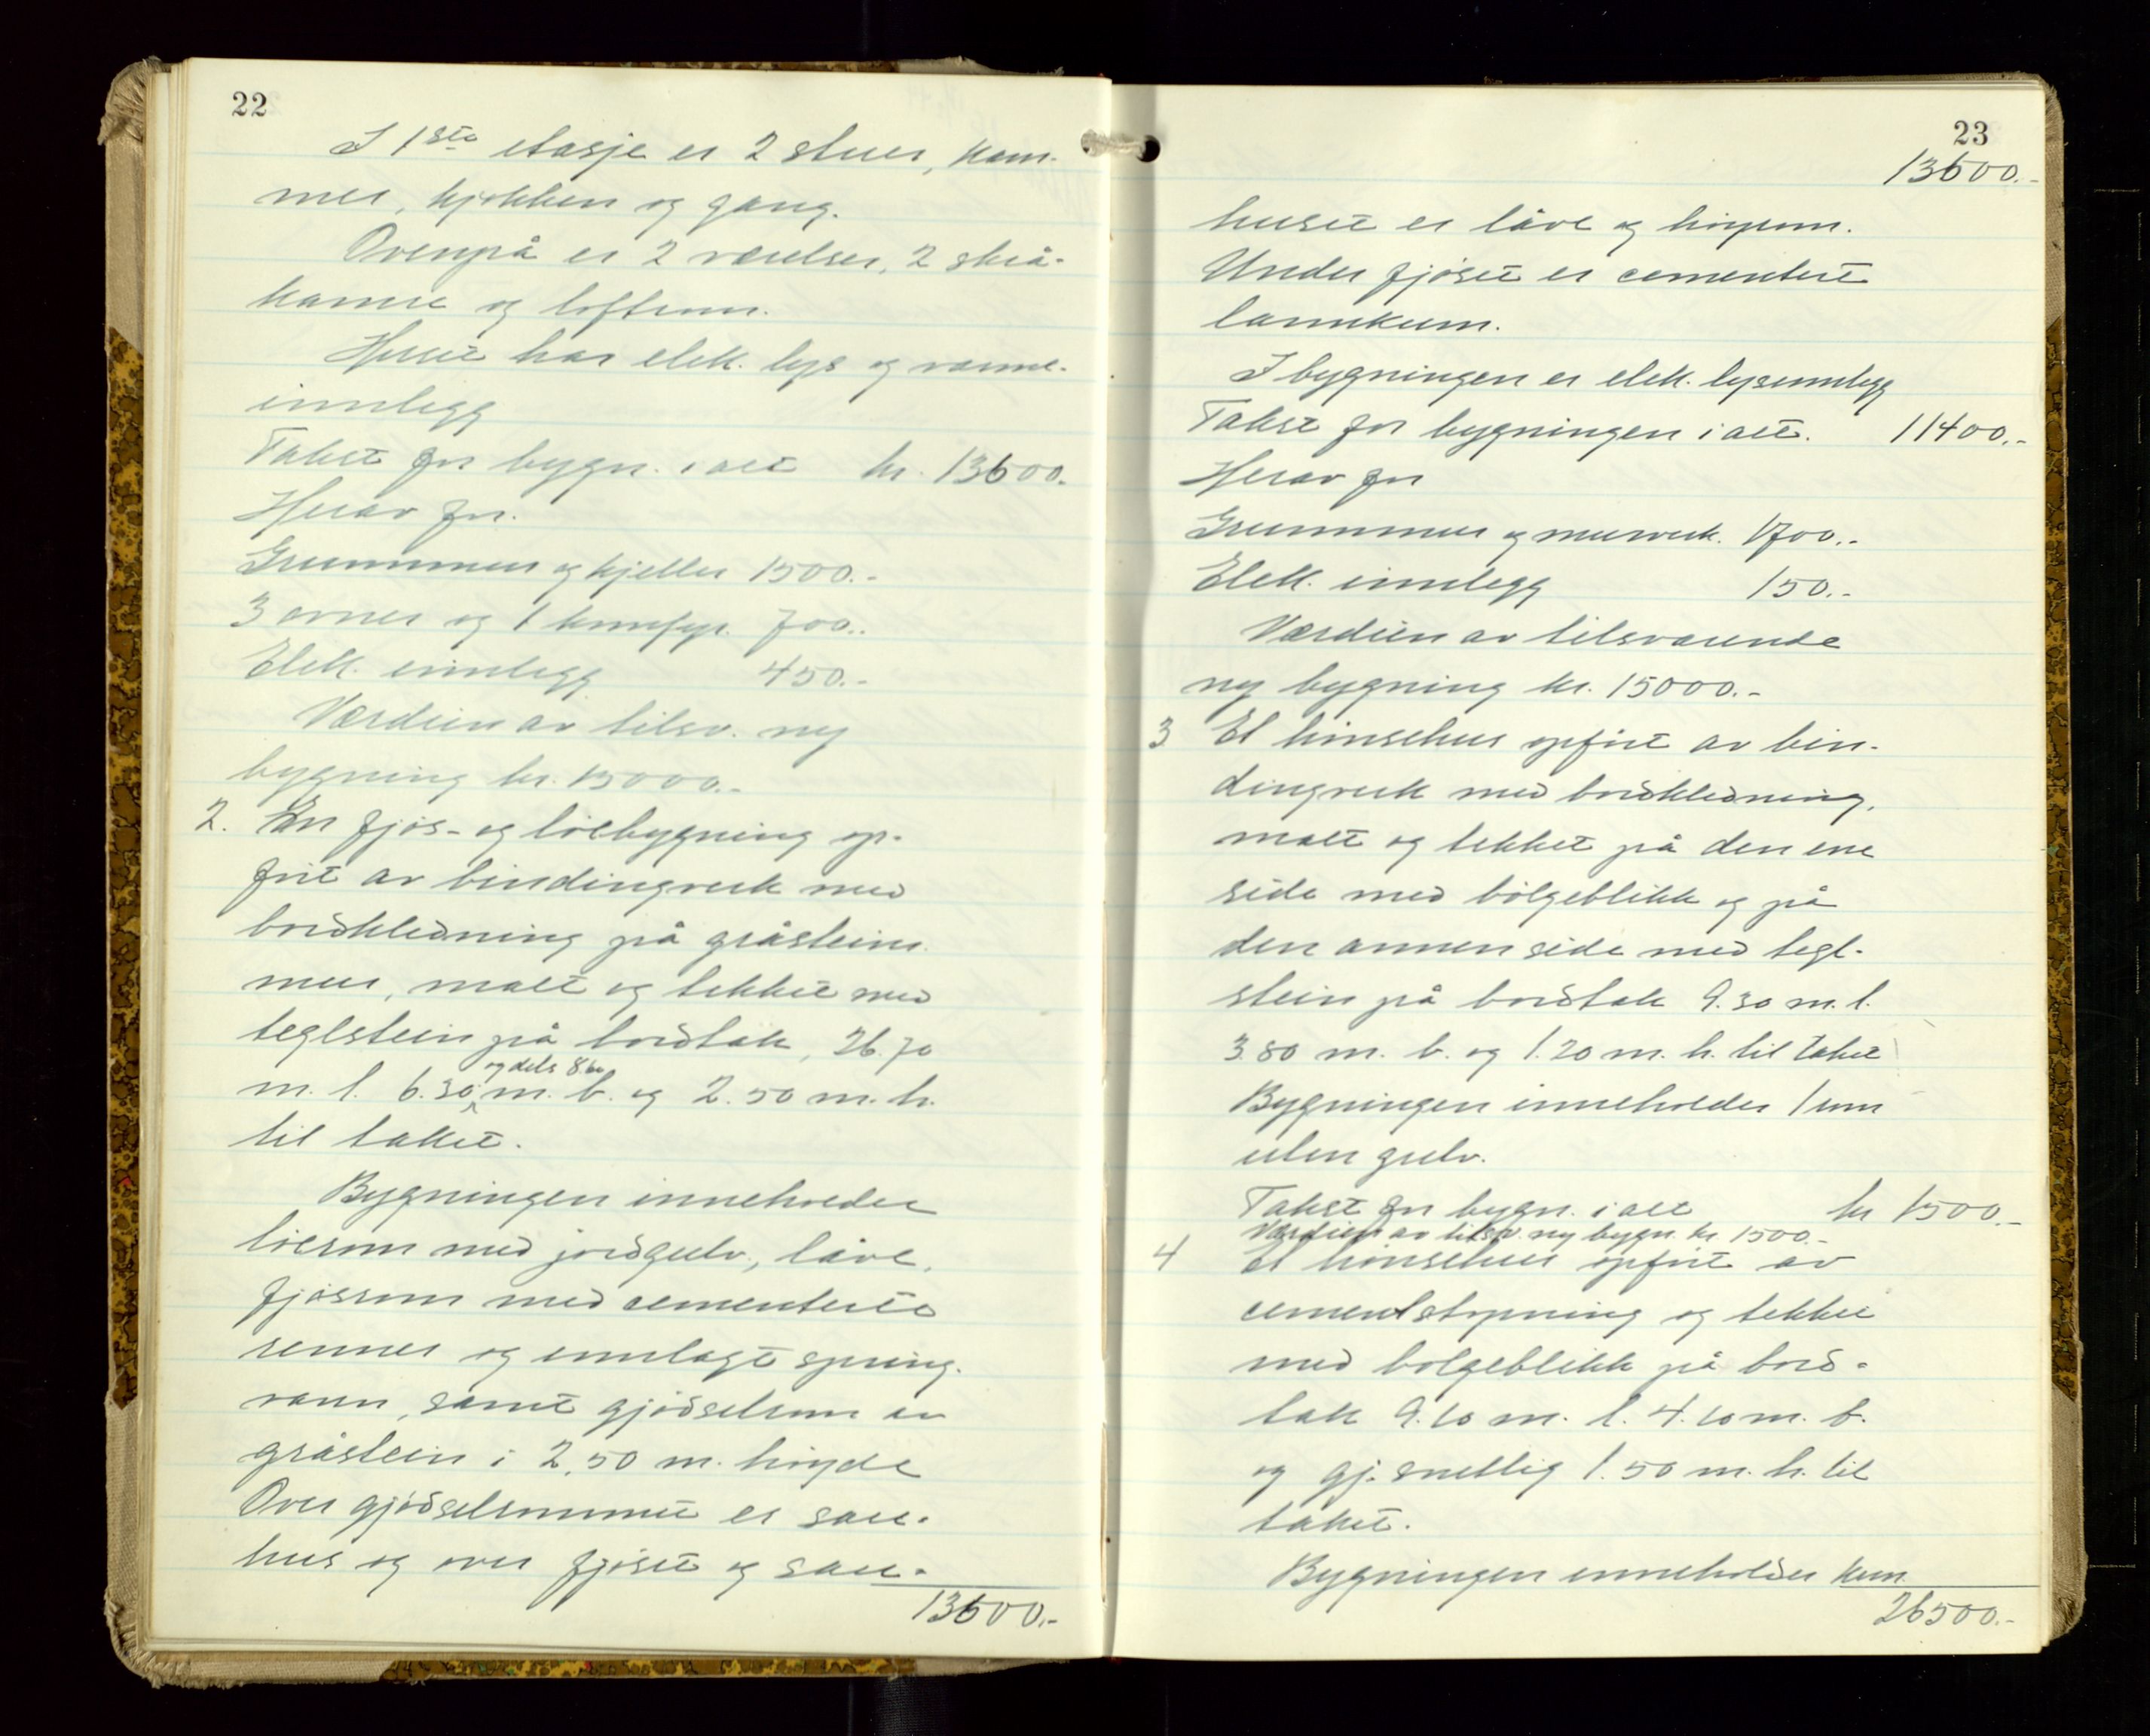 22
I 1ste etasje er 2 stuer, kam-
mer, kjøkken og gang.
Ovenpå er 2 værelser, 2 skrå-
kamre og loftsrum.
Huset har elek. lys og varme-
innlegg
Takst for bygn. i alt kr. 13600.
Herav for.
Grunnmur og kjeller 1500.-
3 ovner og 1 komfyr. 700..
Elek. innlegg 450.-
Værdien av tilsv. ny
bygning kr. 15000.-
2. En fjøs- og løebygning op-
ført av bindingverk med
bordkledning på gråsteins
mur, malt og tekket med
teglstein på bordtak, 26.70
og dels 8.60
m. l. 6.30 m. b. og 2.50 m. h.
til taket.
Bygningen inneholder
løerom med jordgulv, låve,
fjøsrom med cementerte
renner og innlagt spring-
vann, samt gjødselrum av
gråstein i 2.50 m. høyde
Over gjødselrummet er sau-
hus og over fjøset og sau-
13600.-
23
13600.-
huset er låve og høyrum.
Under fjøset er cementert
lannkum.
I bygningen er elek. lysinnlegg
Takst for bygningen i alt. 11400.-
Herav for
Grunnmur og murverk. 1700.-
Elek. innlegg 150.-
Værdien av tilsvarende
ny bygning kr. 15000.-
3 Et hønsehus opført av bin-
dingverk med bordkledning,
malt og tekket på den ene
side med bølgeblikk og på
den annen side med tegl-
stein på bordtak 9.30 m. l.
3.80 m. b. og 1.20 m. h. til taket
Bygningen inneholder 1 rum
uten gulv.
Takst for bygn. i alt kr 1500.-
Værdien av tilsv. ny bygn. kr. 1500.-
4 Et hønsehus opført av
cementstøpning og tekket
med bølgeblikk på bord-
tak 9.10 m. l. 4.10 m. b.
og gj.snittlig 1.50 m. h. til
taket.
Bygningen inneholder kun
26500.-